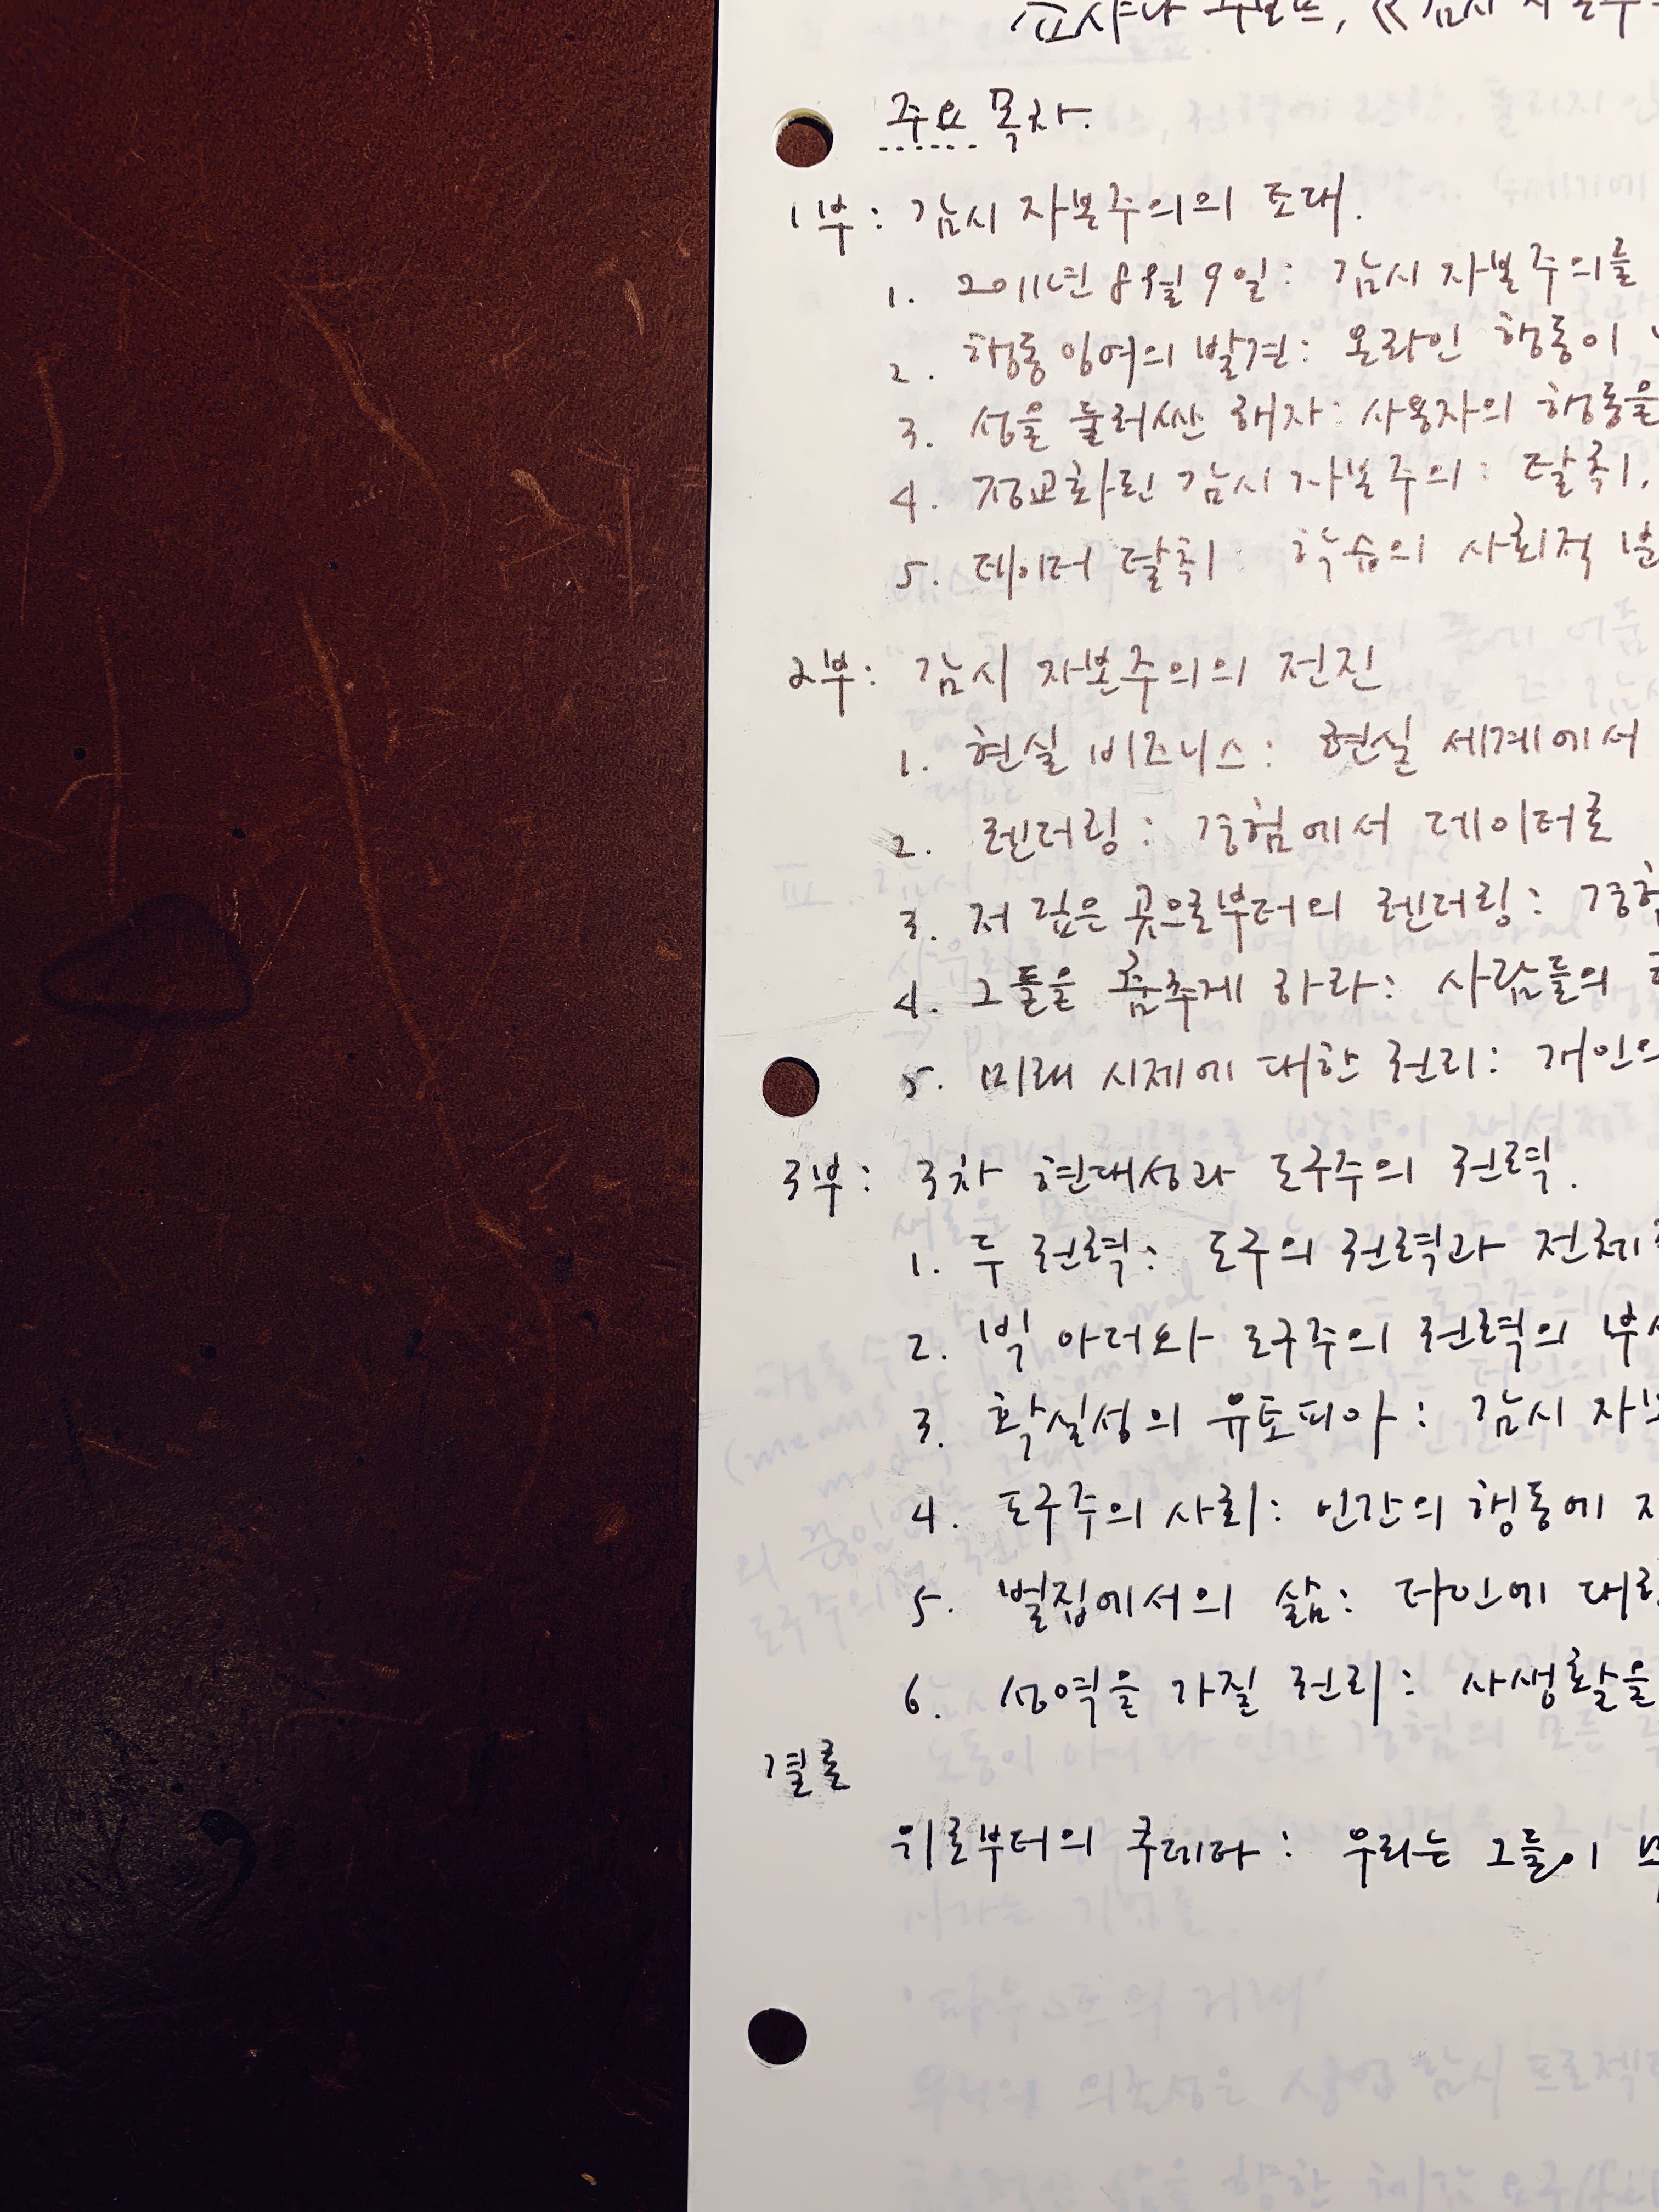 쇼샤나 주보프, 《감시 자본주의
주요 목차.
1부: 감시 자본주의의 토대.
1. 2011년 8월 9일: 감시 자본주의를
2. 행동 잉여의 발견: 온라인 행동이
3. 성을 둘러싼 해자: 사용자의 행동을
4. 정교화된 감시 자본주의: 탈취,
5. 데이터 탈취: 학습의 사회적 분
2부: 감시 자본주의의 전진
1. 현실 비즈니스: 현실 세계에서
2. 렌더링: 경험에서 데이터로
3. 저 깊은 곳으로부터의 렌더링: 경험
4. 그들을 춤추게 하라: 사람들의
5. 미래 시제에 대한 권리: 개인의
3부: 3차 현대성과 도구주의 권력.
1. 두 권력: 도구의 권력과 전체
2. 빅 아더와 도구주의 권력의 부
3. 확실성의 유토피아: 감시 자본
4. 도구주의 사회: 인간의 행동에
5. 벌집에서의 삶: 타인에 대한
6. 성역을 가질 권리: 사생활을
결론
위로부터의 쿠데타: 우리는 그들이